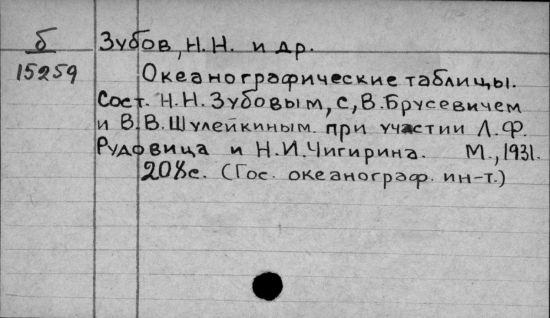 б Зубов, Н.Н. и др.
15259 Океанографические таблицы.
Сост. Н.Н. Зубовым, С,В.Брусевичем
и В.В.Шулейкиным при участии Л.Ф.
Рудовица и Н.И.Чигирина. М.,1931.
208с. (Гос. океанограф. ин-т.)